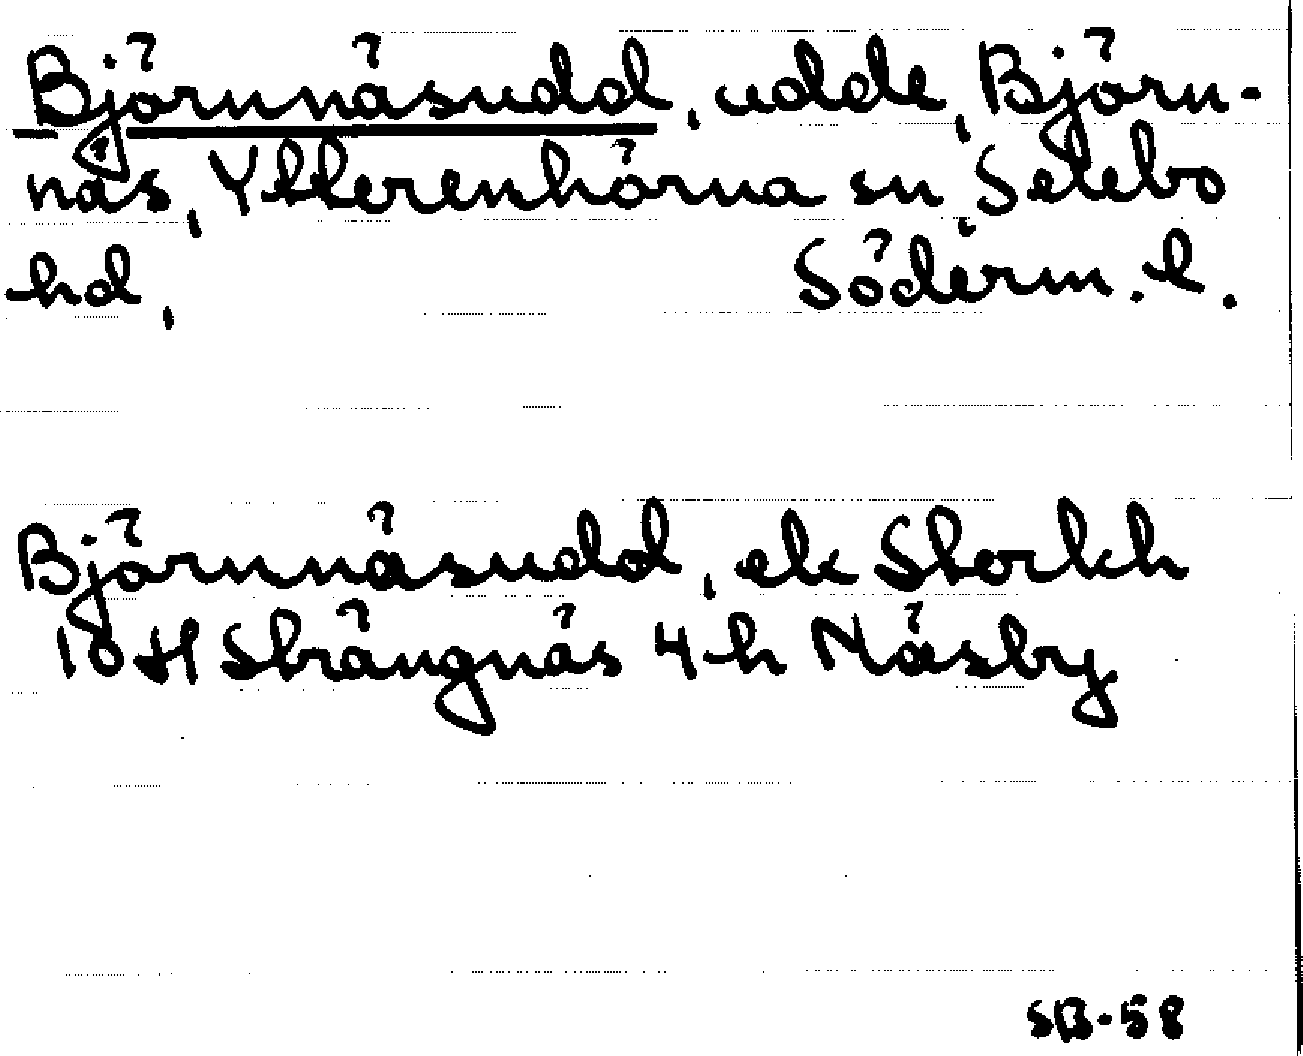 Björnnäsudd, udde, Björn-
näs, Ytterenhörna sn, Selebo
hd, Söderm. l.
Björnnäsudd, ek Storkh
10 H Strängnäs 4 h Näsby
SB-58